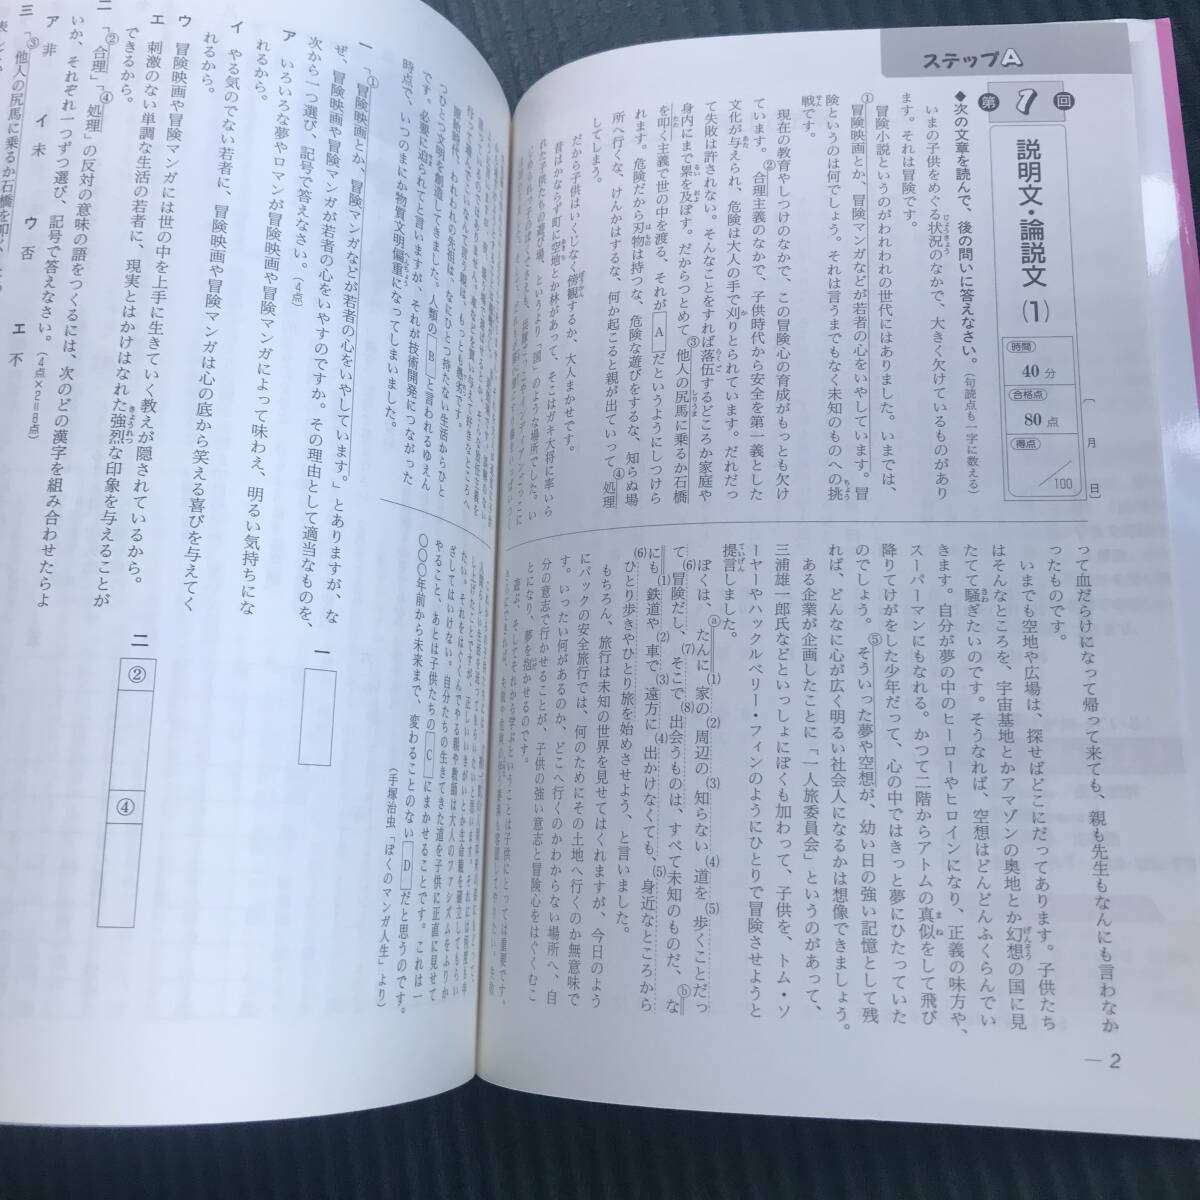 ステップA
第1回
説明文・論説文(1)
時間 40分
合格点 80点
得点 /100
〔 月 日〕
◆次の文章を読んで、後の問いに答えなさい。(句読点も一字に数える)
いまの子供をめぐる状況のなかで、大きく欠けているものがあり
ます。それは冒険です。
冒険小説というのがわれわれの世代にはありました。いまでは、
①冒険映画とか、冒険マンガなどが若者の心をいやしています。冒
険というのは何でしょう。それは言うまでもなく未知のものへの挑
戦です。
現在の教育やしつけのなかで、この冒険心の育成がもっとも欠け
ています。②合理主義のなかで、子供時代から安全を第一義とした
文化が与えられ、危険は大人の手で刈りとられています。だれだっ
て失敗は許されない。そんなことをすれば落伍するどころか家庭や
身内にまで累を及ぼす。だからつとめて③他人の尻馬に乗るか石橋
を叩く主義で世の中を渡る、それが A だというようにしつけら
れます。危険だから刃物は持つな、危険な遊びをするな、知らぬ場
所へ行くな、けんかはするな、何か起こると親が出ていって④処理
してしまう。
だから子供はいくじなく傍観するか、大人まかせです。
昔はかならず町に空地とか林があって、そこはガキ大将に率いら
れた子供たちの遊び場、というより「国」のような場所でした。い
って血だらけになって帰って来ても、親も先生もなんにも言わなか
ったものです。
いまでも空地や広場は、探せばどこにだってあります。子供たち
はそんなところを、宇宙基地とかアマゾンの奥地とか幻想の国に見
たてて騒ぎたいのです。そうなれば、空想はどんどんふくらんでい
きます。自分が夢の中のヒーローやヒロインになり、正義の味方や、
スーパーマンにもなれる。かつて二階からアトムの真似をして飛び
降りてけがをした少年だって、心の中ではきっと夢にひたっていた
のでしょう。⑤そういった夢や空想が、幼い日の強い記憶として残
れば、どんなに心が広く明るい社会人になるかは想像できましょう。
ある企業が企画したことに「一人旅委員会」というのがあって、
三浦雄一郎氏などといっしょにぼくも加わって、子供を、トム・ソ
ーヤーやハックルベリー・フィンのようにひとりで冒険させようと
提言しました。
⑥ぼくは、ⓐたんに(1)家の(2)周辺の(3)知らない(4)道を(5)歩くことだっ
て(6)冒険だし、(7)そこで(8)出会うものは、すべて未知のものだ、ⓑな
にも(1)鉄道や(2)車で(3)遠方に(4)出かけなくても、(5)身近なところから
(6)ひとり歩きやひとり旅を始めさせよう、と言いました。
もちろん、旅行は未知の世界を見せてはくれますが、今日のよう
にパックの安全旅行では、何のためにその土地へ行くのか無意味で
す。いったい何があるのか、どこへ行くのかわからない場所へ、自
分の意志で行かせることが、子供の強い意志と冒険心をはぐくむこ
とになり、夢を抱かせるのです。
— 2
原始時代、われわれの先祖は、なにひとつ持たない生活からひと
つひとつ文明を創造してきました。人類の B と言われるゆえん
です。必要に迫られてと言いますが、それが技術開発につながった
時点で、いつのまにか物質文明偏重になってしまいました。
やること、あとは子供たちの C にまかせることです。これは一
〇〇〇年前から未来まで、変わることのない D だと思うのです。
(手塚治虫「ぼくのマンガ人生」より)
一 「①冒険映画とか、冒険マンガなどが若者の心をいやしています。」とありますが、な
ぜ、冒険映画や冒険マンガが若者の心をいやすのですか。その理由として適当なものを、
次から一つ選び、記号で答えなさい。(4点)
ア いろいろな夢やロマンが冒険映画や冒険マンガによって味わえ、明るい気持ちにな
れるから。
イ やる気のでない若者に、冒険映画や冒険マンガは心の底から笑える喜びを与えてく
れるから。
ウ 冒険映画や冒険マンガには世の中を上手に生きていく教えが隠されているから。
エ 刺激のない単調な生活の若者に、現実とはかけはなれた強烈な印象を与えることが
できるから。
一
二 「②合理」「④処理」の反対の意味の語をつくるには、次のどの漢字を組み合わせたらよ
いか、それぞれ一つずつ選び、記号で答えなさい。(4点×2=8点)
ア 非 イ 未 ウ 否 エ 不
二 ② ④
三 「③他人の尻馬に乗るか石橋を叩く